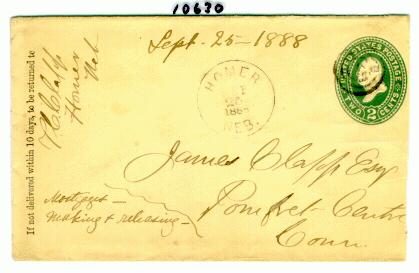 10630
Sept. 25 - 1888
If not delivered within 10 days, to be returned to
Clapp
Homer
Neb
HOMER
188
NEB.
UNITED STATES POSTAGE
TWO 2 CENTS
James Clapp Esq
Pomfret Centre
Conn.
Mortgages —
making & releasing —